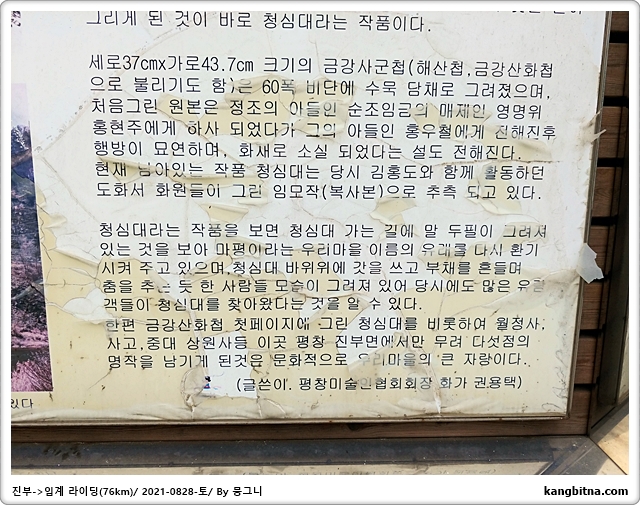 그리게 된 것이 바로 청심대라는 작품이다.
세로37cmx가로43.7cm 크기의 금강사군첩(해산첩,금강산화첩
으로 불리기도 함)은 60폭 비단에 수묵 담채로 그려졌으며,
처음그린 원본은 정조의 아들인 순조임금의 매제인 영명위
홍현주에게 하사 되었다가 그의 아들인 홍우철에게 전해진후
행방이 묘연하며, 화재로 소실 되었다는 설도 전해진다.
현재 남아있는 작품 청심대는 당시 김홍도와 함께 활동하던
도화서 화원들이 그린 임모작(복사본)으로 추측 되고 있다.
청심대라는 작품을 보면 청심대 가는 길에 말 두필이 그려져
있는 것을 보아 마평이라는 우리마을 이름의 유래를 다시 환기
시켜 주고 있으며,청심대 바위위에 갓을 쓰고 부채를 흔들며
춤을 추는 듯 한 사람들 모습이 그려져 있어 당시에도 많은 유람
객들이 청심대를 찾아왔다는 것을 알 수 있다.
한편 금강산화첩 첫페이지에 그린 청심대를 비롯하여 월정사,
사고,중대 상원사등 이곳 평창 진부면에서만 무려 다섯점의
명작을 남기게 된것은 문화적으로 우리마을의 큰 자랑이다.
(글쓴이. 평창미술인협회회장 화가 권용택)
있다
진부->임계 라이딩(76km)/ 2021-0828-토/ By 몽그니
kangbitna.com